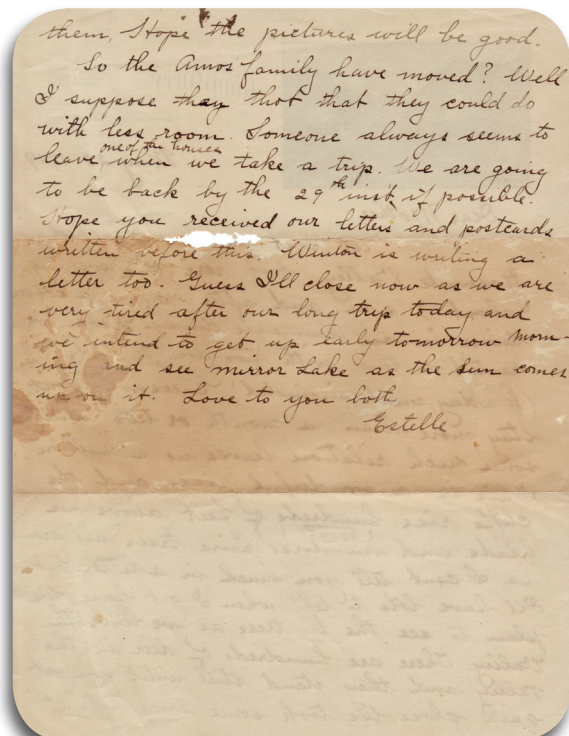 them, Hope the pictures will be good.
So the Amos family have moved? Well
I suppose they thot that they could do
with less room. Someone always seems to
one of the houses
leave, when we take a trip. We are going
to be back by the 29th inst, if possible.
Hope you received our letters and postcards
written before this. Winton is writing a
letter too. Guess I'll close now as we are
very tired after our long trip today and
we intend to get up early tomorrow morn-
ing and see mirror Lake as the Sun comes
up on it. Love to you both
Estelle